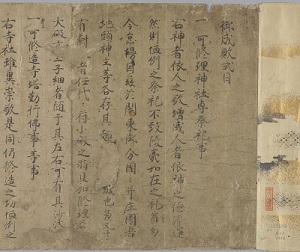 御成敗式目
一 可修理神社專祭祀事
右神者依人之敬増威人者依神之德添運
然則恒例之祭祀不致陵夷如在之礼奠勿
令怠慢因玆於關東御分國々并庄園者
地頭神主等各存其趣可致精誠也兼又至
有封社者任代々符小破之時且加修理若
大破言上子細者随于其左右可有其沙汰
一 可修造寺塔勤行佛事等事
右寺社雖異崇敬是同仍修造之功恒例之